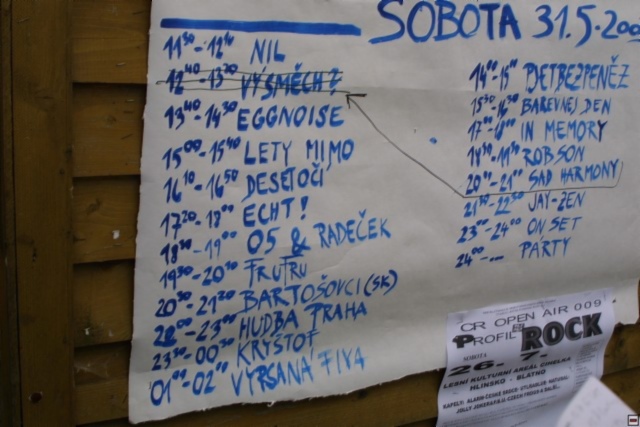 SOBOTA 31.5.200
11³⁰-12¹⁰ NIL
12⁴⁰-13²⁰ VÝSMĚCH?
13⁴⁰-14³⁰ EGGNOISE
15⁰⁰-15⁴⁰ LETY MIMO
16¹⁰-16⁵⁰ DESETOČÍ
17²⁰-18⁰⁰ ECHT!
18³⁰-19⁰⁰ O5 & RADEČEK
19³⁰-20¹⁰ FRUFRU
20³⁰-21²⁰ BARTOŠOVCI (SK)
22⁰⁰-23⁰⁰ HUDBA PRAHA
23³⁰-00³⁰ KRYŠTOF
01⁰⁰-02⁰⁰ VYPSANÁ FIXA
14⁰⁰-15⁰⁰
15³⁰-16³⁰ BAREVNEJ DEN
IN MEMORY
ROBSON
20⁰⁰-21⁰⁰ SAD HARMONY
21³⁰-22³⁰ JAY-ZEN
23⁰⁰-24⁰⁰ ON SET
24⁰⁰-... PARTY
CR OPEN AIR 009
PROFIL ROCK
SOBOTA
26. 7.
LESNÍ KULTURNÍ AREÁL CIHELNA
HLINSKO - BLATNO
KAPELY: